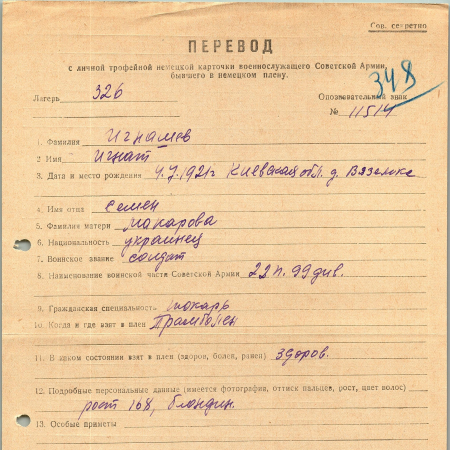 Сов. секретно
ПЕРЕВОД
с личной трофейной немецкой карточки военнослужащего Советской Армии,
бывшего в немецком плену.
348
Лагерь 326 Опознавательный знак
№ 11514
1. Фамилия Игнашев
2 Имя Игнат
3. Дата и место рождения 4.7.1921г Киевская обл. д. Вяземке
4. Имя отца Семен
5. Фамилия матери Макарова
6. Национальность украинец
7. Воинское звание солдат
8. Наименование воинской части Советской Армии 22 п. 99 див.
9. Гражданская специальность токарь
10. Когда и где взят в плен
11. В каком состоянии взят в плен (здоров, болен, ранен) здоров.
12. Подробные персональные данные (имеется фотография, оттиск пальцев, рост, цвет волос)
рост 168, блондин.
13. Особые приметы